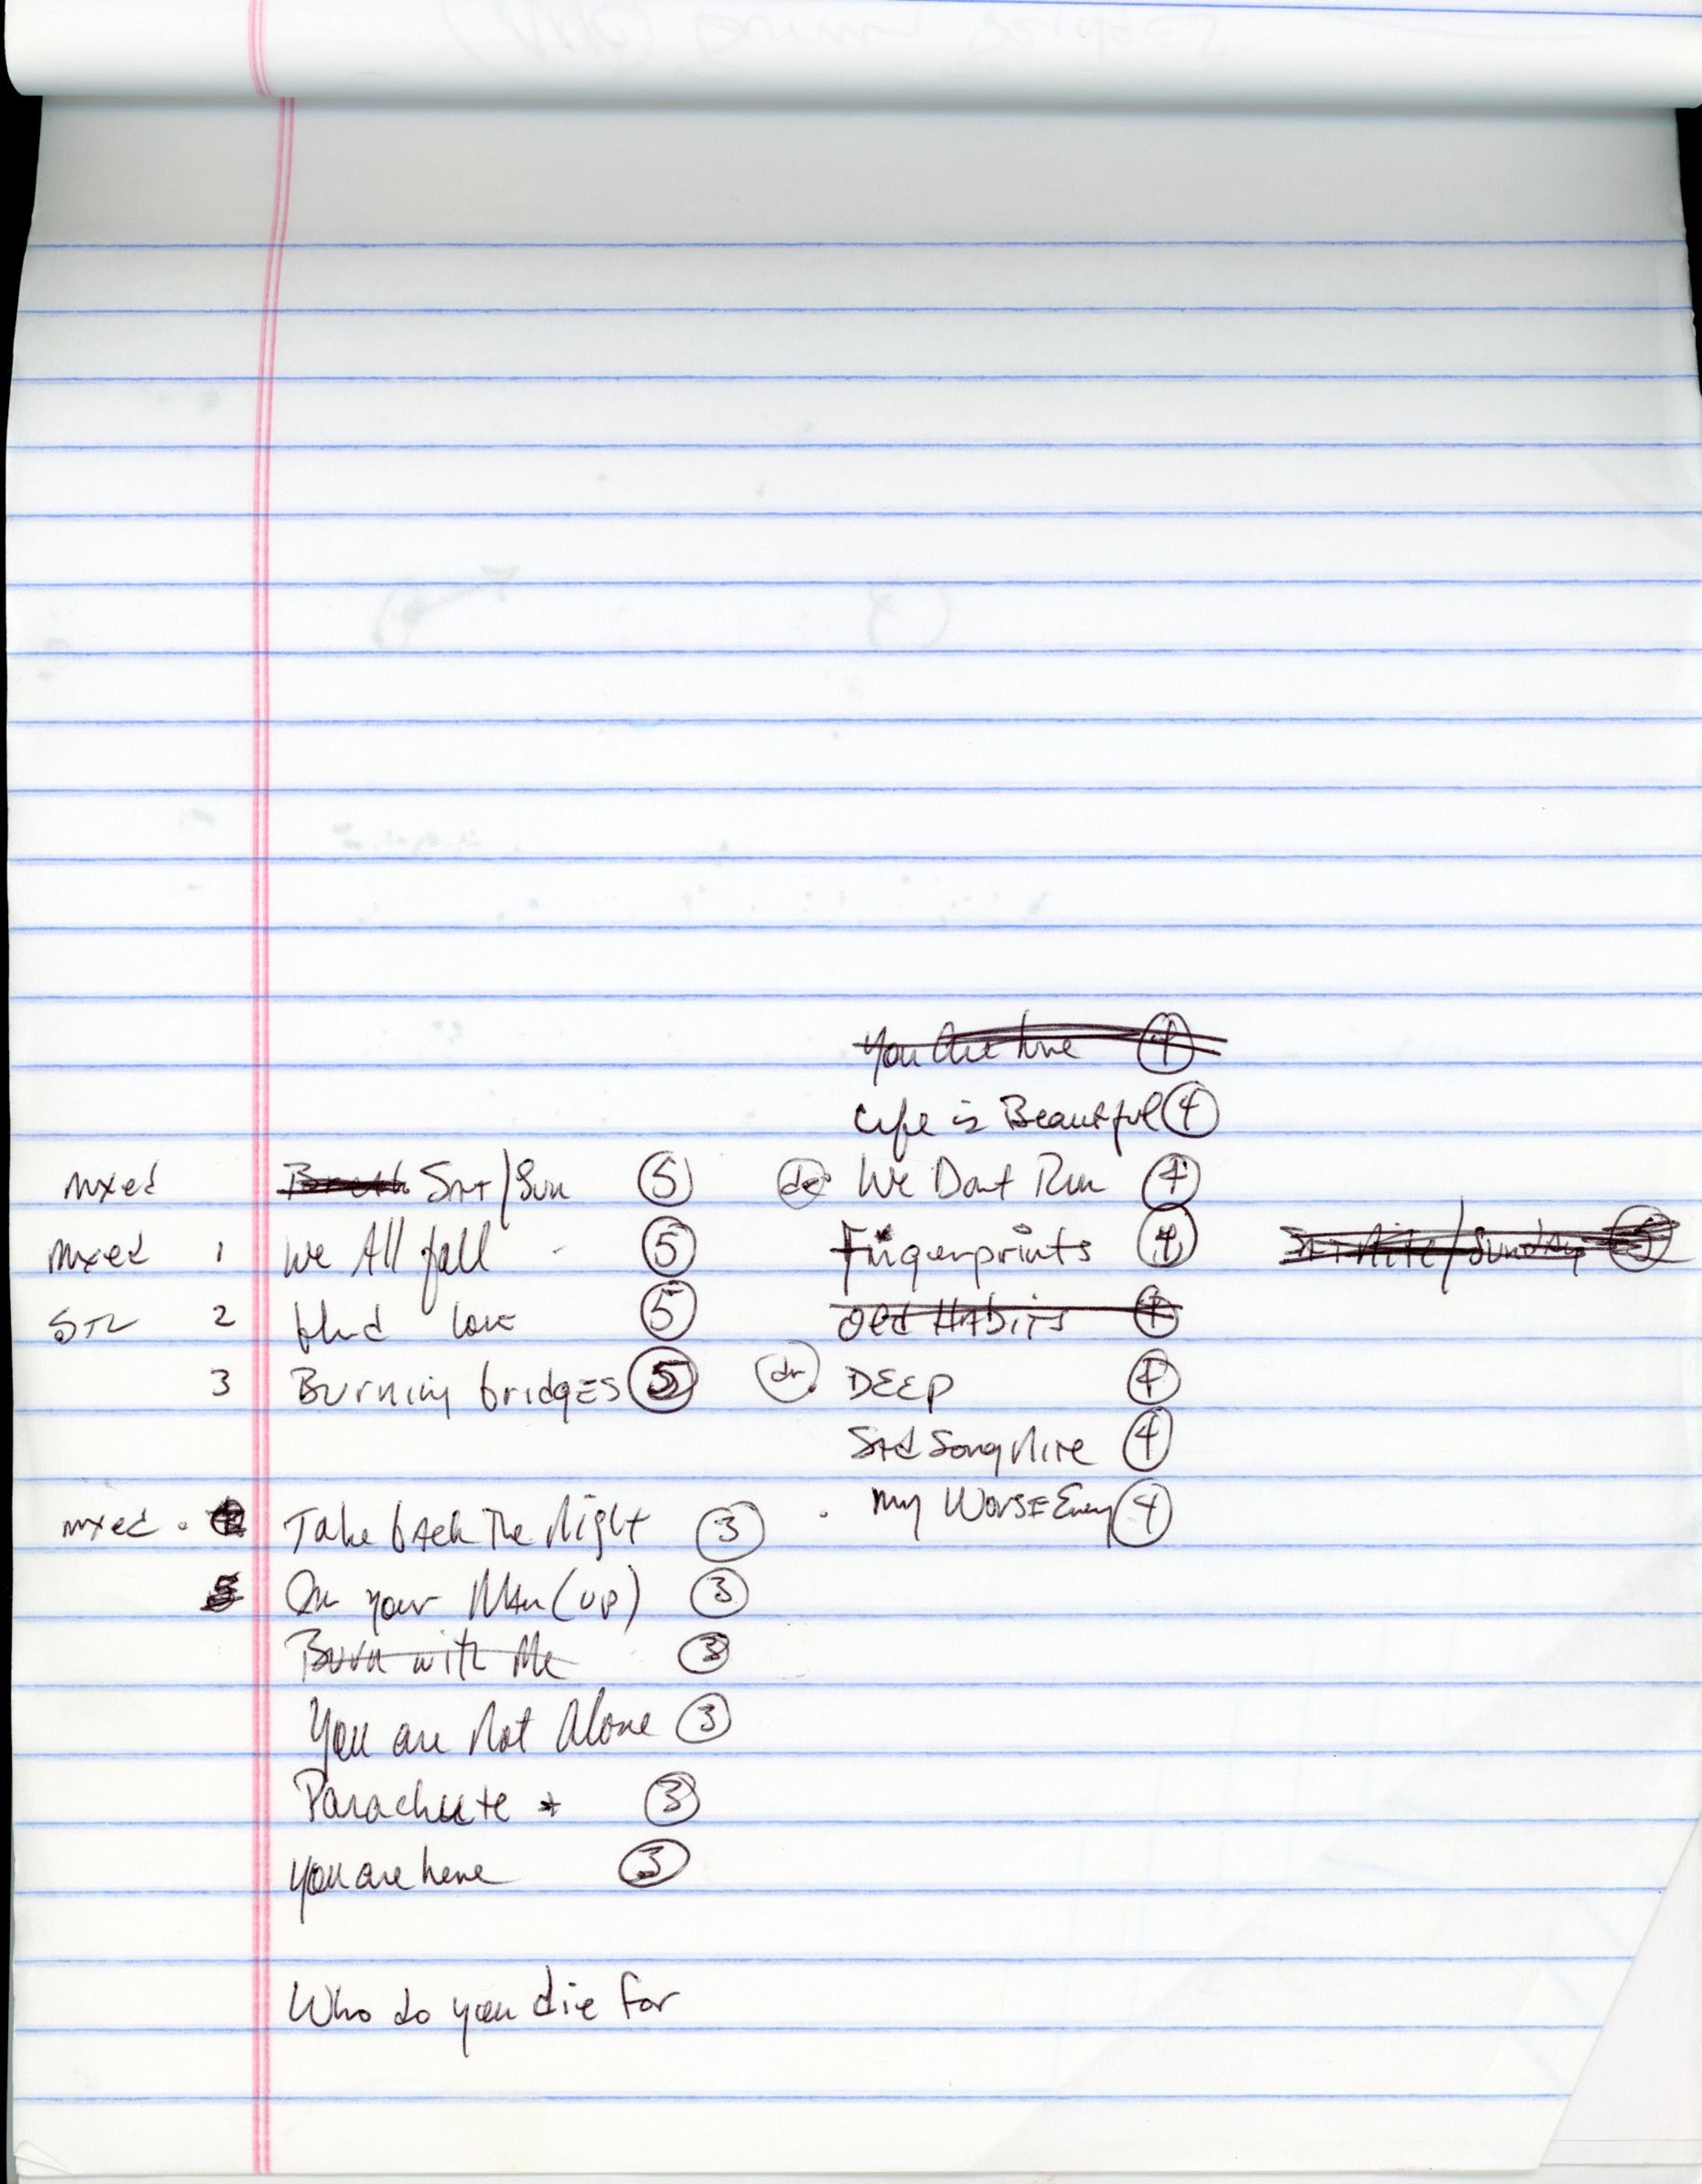 You Are here 4
Life is Beautiful 4
mxed Sat/Sun 5
de We Dont Run 4
mxed 1 We All fall - 5
Fingerprints 4
Sat Nite/Sunday 5
STL 2 blind love 5
Old Habits 4
3 Burning bridgES 5
dr. DEEP 4
Sad Song Nite 4
mxed . Take back The Night 3
. my WorsE Enemy 4
5 On your Man (up) 3
Burn with Me 3
You are Not Alone 3
Parachute * 3
You are here 3
Who do you die for